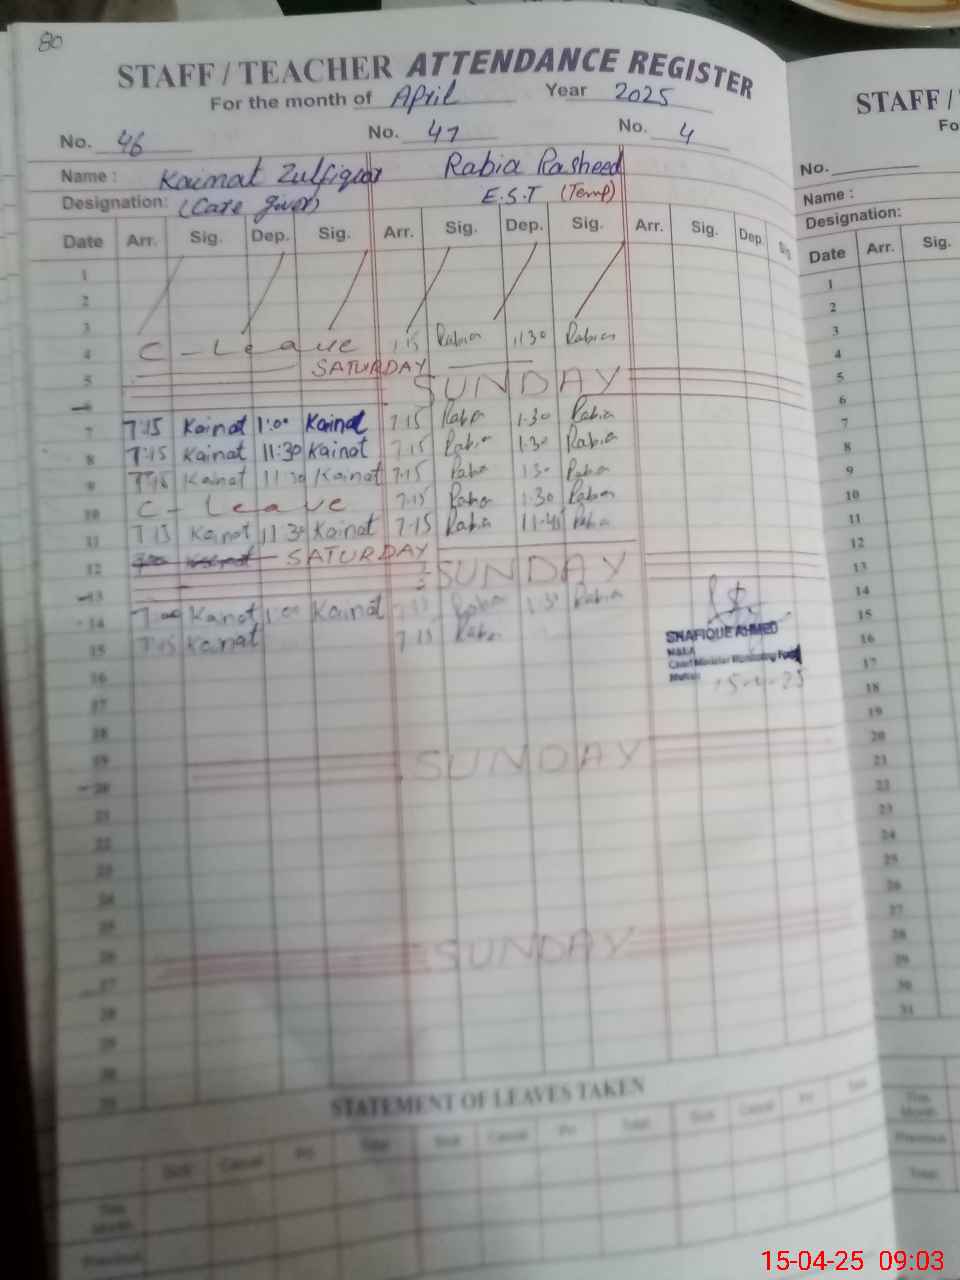 80
STAFF / TEACHER ATTENDANCE REGISTER
For the month of April Year 2025
No. 46 No. 47 No. 4
Name : Kainat Zulfiqar Rabia Rasheed
Designation: (Care giver) E.S.T (Temp)
Date Arr. Sig. Dep. Sig. Arr. Sig. Dep. Sig. Arr. Sig. Dep. Sig
1
2
3
4 C - Leave Rabia 1:30 Rabia
5 SATURDAY
6 SUNDAY
7 7:15 Kainat 1:00 Kainat 7.15 Rabia 1.30 Rabia
8 7:15 Kainat 11:30 Kainat 7.15 Rabia 1.30 Rabia
9 7:15 Kainat 11:30 Kainat 7.15 Rabia 1.30 Rabia
10 C - Leave 7.15 Rabia 1.30 Rabia
11 7:15 Kainat 11:30 Kainat 7.15 Rabia 11.45 Rabia
12 SATURDAY
13 SUNDAY
14 7:00 Kainat 1:00 Kainat 7.15 Rabia 1.30 Rabia
15 7:15 Kainat 7.15 Rabia
SHAFIQUE AHMED
M&EA
Chief Minister Monitoring Force
Multan 15-4-25
16
17
18
19
20 SUNDAY
21
22
23
24
25
26
27 SUNDAY
28
29
30
31
STATEMENT OF LEAVES TAKEN
Sick Casual Pri Total Sick Casual Pri Total Sick Casual Pri Total
This Month
Previous
STAFF /
Fo
No.
Name :
Designation:
Date Arr. Sig.
1
2
3
4
5
6
7
8
9
10
11
12
13
14
15
16
17
18
19
20
21
22
23
24
25
26
27
28
29
30
31
This Month
Previous
Total
15-04-25 09:03